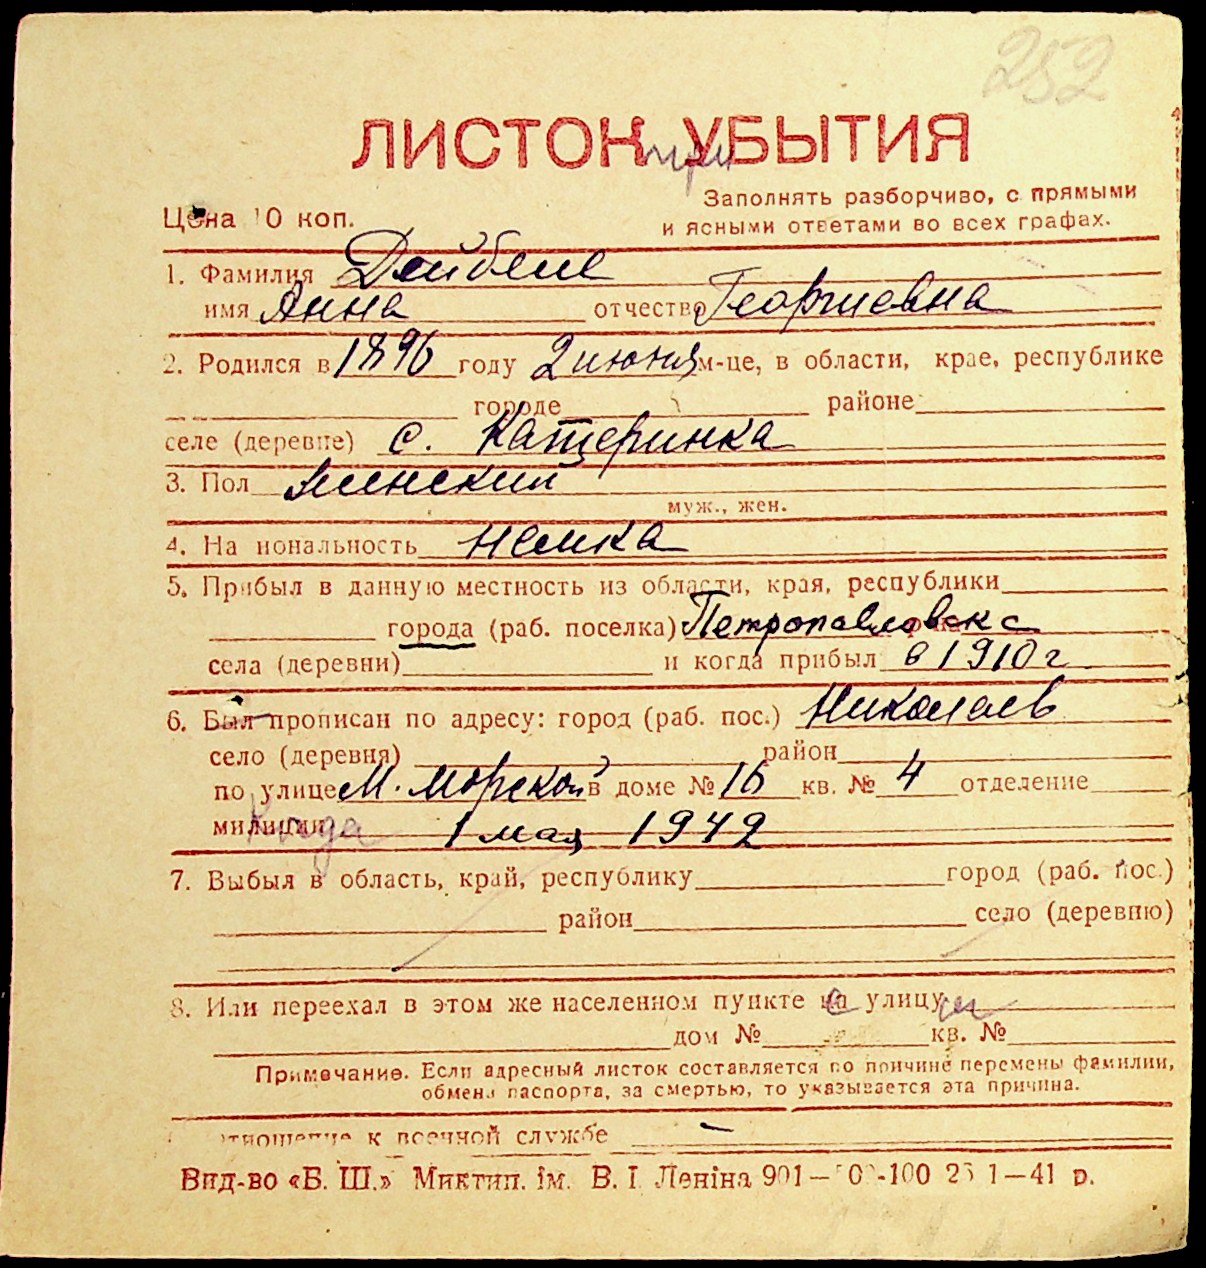 252
ЛИСТОК при УБЫТИЯ
Заполнять разборчиво, с прямыми
Цена 10 коп.
и ясными ответами во всех графах.
1. Фамилия Дейбеле
имя Анна отчество Георгиевна
2. Родился в 1896 году 2 июня м-це, в области, крае, республике
городе районе
селе (деревне) с. Катеринка
3. Пол женский
муж., жен.
4. На иональность немка
5. Прибыл в данную местность из области, края, республики
города (раб. поселка) Петропавловска
села (деревни) и когда прибыл в 1910 г
6. Был прописан по адресу: город (раб. пос.) Николаев
село (деревня) район
по улице М. Морской в доме № 16 кв. № 4 отделение
милиции 1 мая 1942
7. Выбыл в область, край, республику город (раб. пос.)
район село (деревню)
8. Или переехал в этом же населенном пункте на улицу
дом № кв. №
Примечание. Если адресный листок составляется по причине перемены фамилии,
обмена паспорта, за смертью, то указывается эта причина.
отношение к военной службе —
Вид-во «Б. Ш.» Миктип. ім. В. І. Леніна 901— -100 1—41 р.